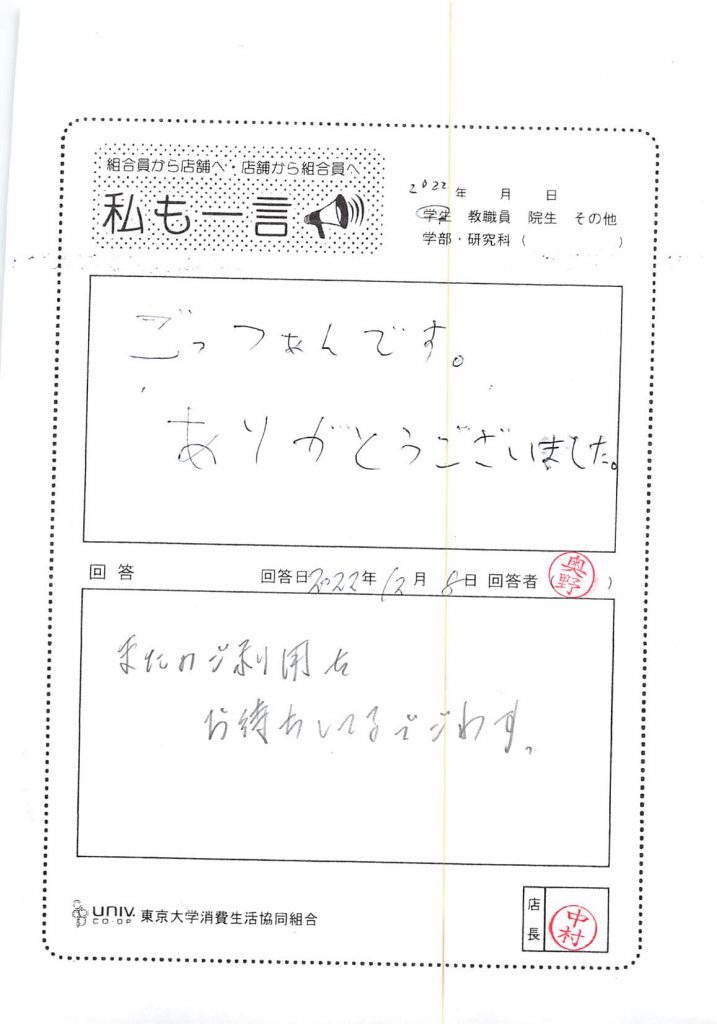 組合員から店舗へ・店舗から組合員へ
私も一言
2022年 月 日
学生 教職員 院生 その他
学部・研究科( )
ごっつぁんです。
ありがとうございました。
回答 回答日2022年12月8日 回答者(奥野)
またのご利用を
お待ちしてるでごわす。
UNIV. CO-OP 東京大学消費生活協同組合
店長 中村